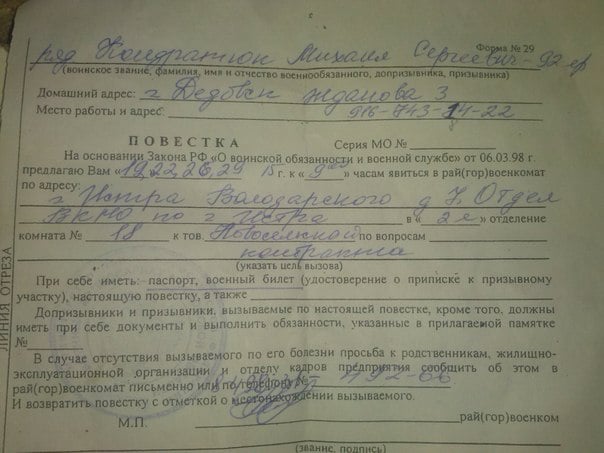 ряд Кондратюк Михаил Сергеевич - 92 гр
Форма № 29
(воинское звание, фамилия, имя и отчество военнообязанного, допризывника, призывника)
Домашний адрес: г Дедовск Жданова 3
Место работы и адрес: 916-743-14-22
ПОВЕСТКА Серия МО №
На основании Закона РФ "О воинской обязанности и военной службе" от 06.03.98 г.
предлагаю Вам « 19,22,26,29 15 г. к « 9 00 » часам явиться в рай(гор)военкомат
по адресу:
г. Истра Володарского д 7. Отдел
ВКМО по г Истра в « 2 е » отделение
комната № 18 к тов. по вопросам
контракта
(указать цель вызова)
При себе иметь: паспорт, военный билет (удостоверение о приписке к призывному
участку), настоящую повестку, а также
Допризывники и призывники, вызываемые по настоящей повестке, кроме того, должны
иметь при себе документы и выполнить обязанности, указанные в прилагаемой памятке
№
В случае отсутствия вызываемого по его болезни просьба к родственникам, жилищно-
эксплуатационной организации и отделу кадров предприятия сообщить об этом в
рай(гор)военкомат письменно или по телефону № 492-66
И возвратить повестку с отметкой о местонахождении вызываемого.
М.П. рай(гор)военком
(звание, подпись)
ЛИНИЯ ОТРЕЗА